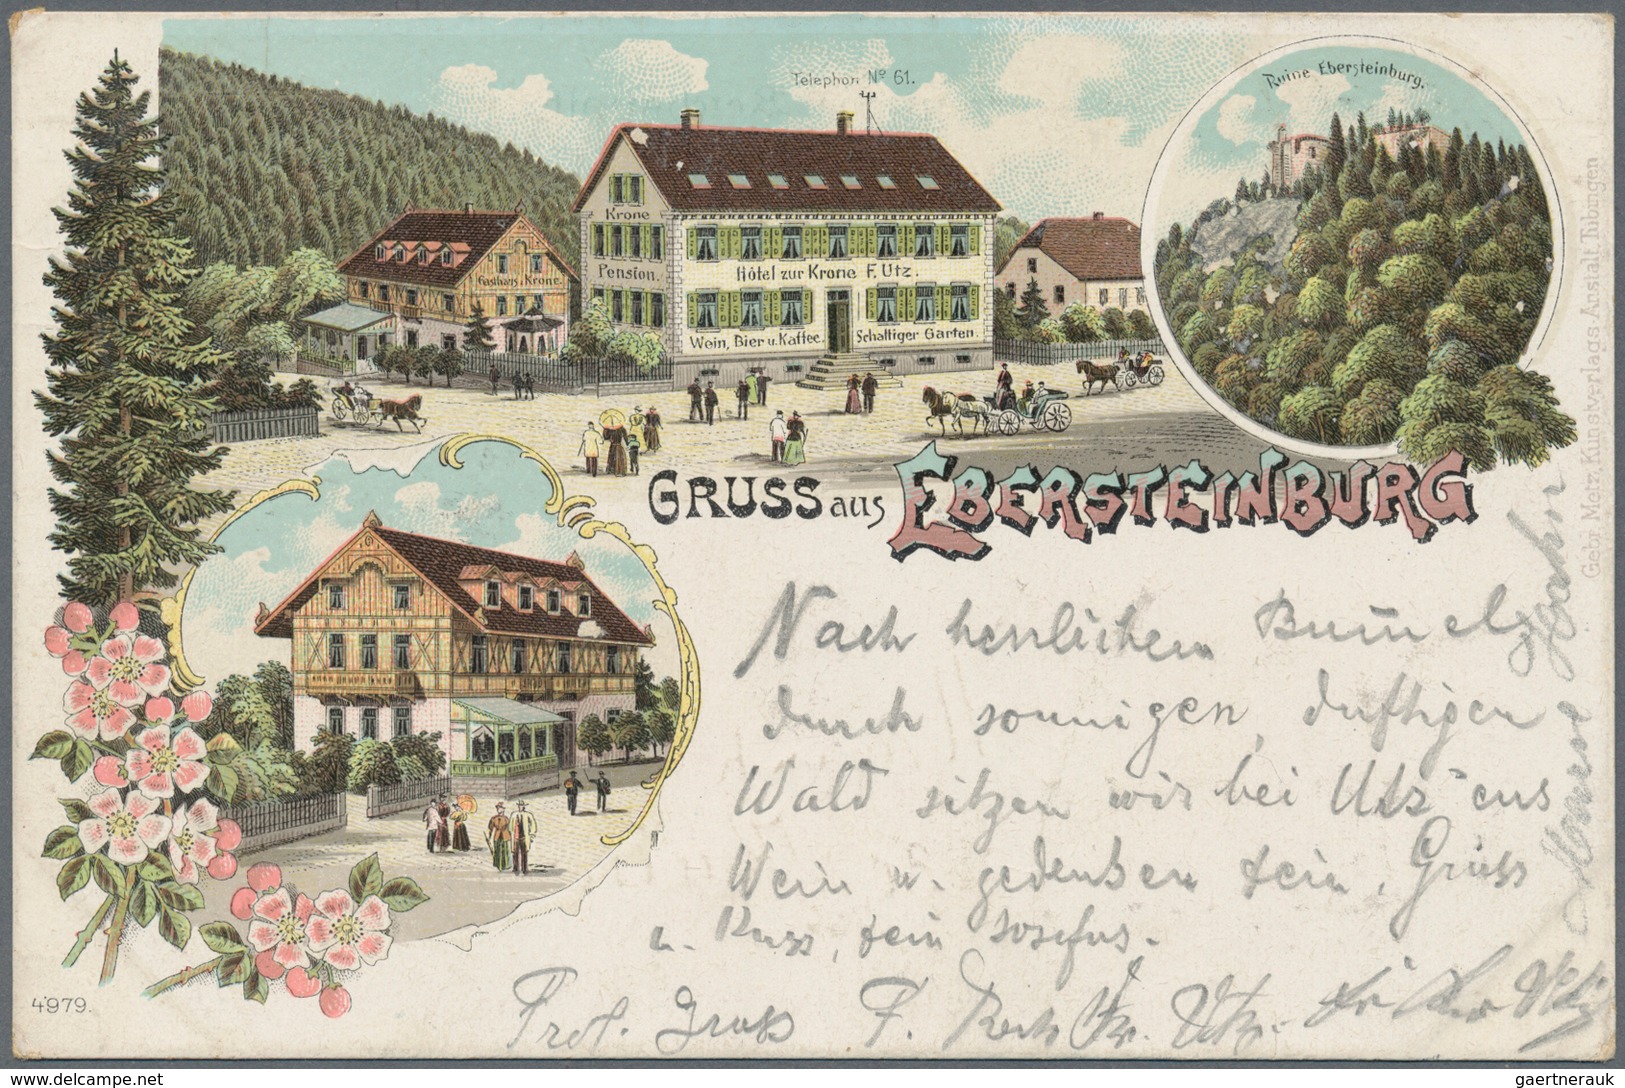 Telephon Nº 61.
Ruine Ebersteinburg.
Krone
Pension.
Gasthaus z. Krone.
Hôtel zur Krone F. Utz.
Wein, Bier u. Kaffee. Schattiger Garten
GRUSS aus EBERSTEINBURG
Gebr. Metz, Kunstverlags-Anstalt, Tübingen
Nach herrlichem Bum̄elz
durch sonnigen, duftigen
Wald sitzen wir bei Utz'ens
Wein u. gedenken dein. Gruss
u. Kuss, dein Josefus.
Prof. Gross F. Utz.
4979.
gaertnerauk